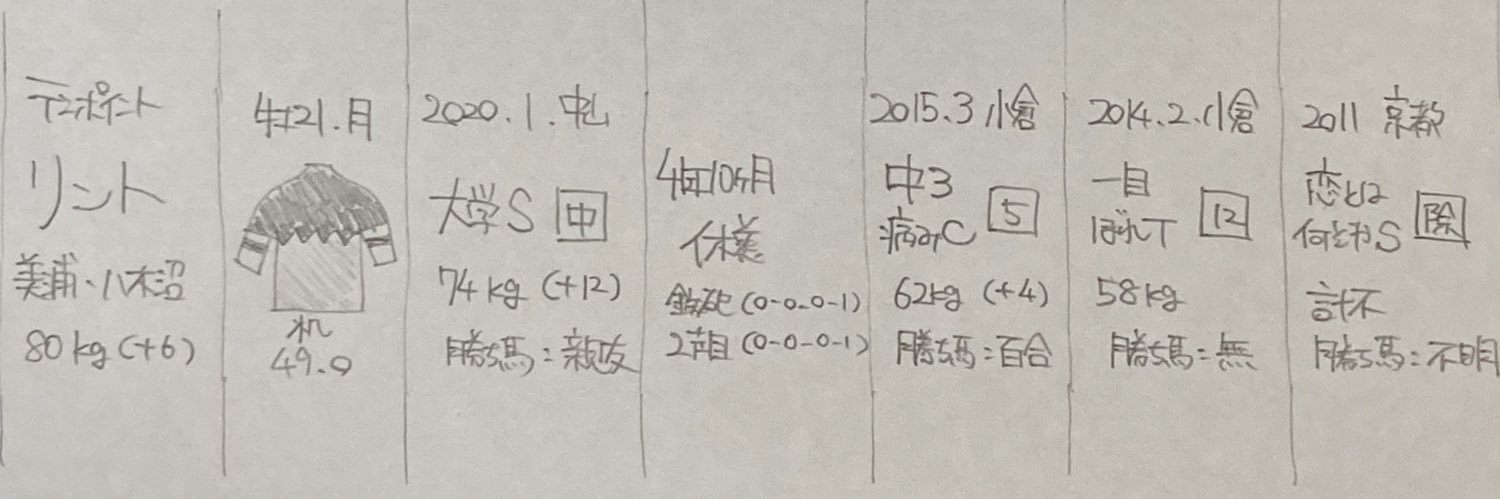 テンポイント
リント
美浦・八木沼
80kg(+6)
牡21.月
机
49.0
2020.1.中山
大学S 中
74kg (+12)
勝ち馬:親友
4年10ヶ月
休養
鉄砲(0-0-0-1)
2走目(0-0-0-1)
2015.3小倉
中3
病みC 5
62kg (+4)
勝ち馬:百合
2014.2.小倉
一目
ぼれT 12
58kg
勝ち馬:無
2011 京都
恋とは
何ぞやS 除
計不
勝ち馬:不明